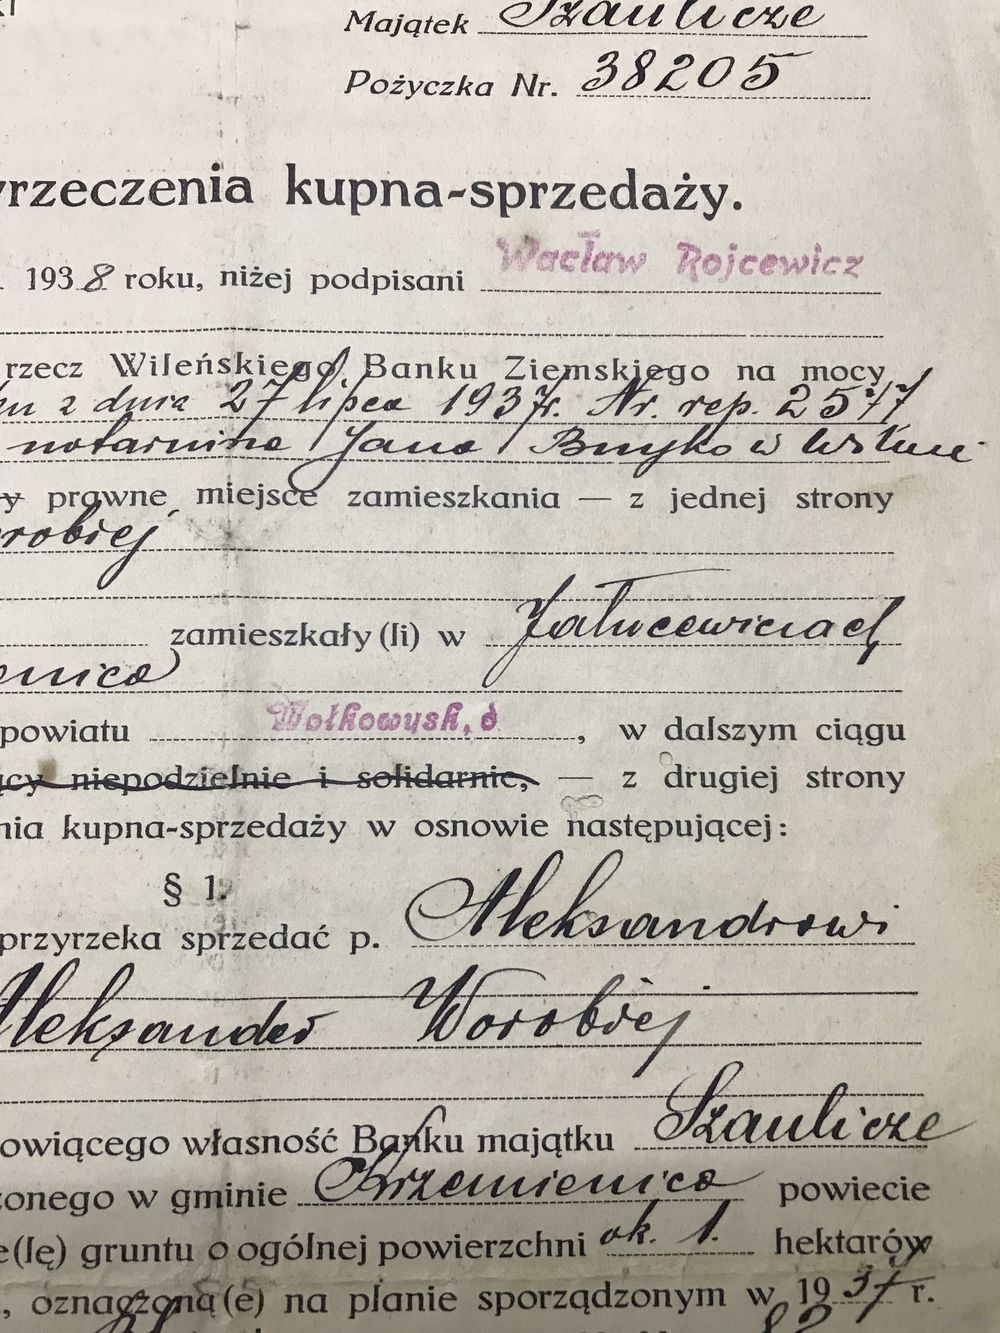 Majątek Szaulicze
Pożyczka Nr. 38205
yrzeczenia kupna-sprzedaży.
1938 roku, niżej podpisani Wacław Rojcewicz
rzecz Wileńskiego Banku Ziemskiego na mocy
z dnia 27 lipca 1937 r. Nr. rep. 2577
Jana w
y prawne miejsce zamieszkania — z jednej strony
robiej
zamieszkały (li) w
enica
powiatu Wołkowysk.
, w dalszym ciągu
ący niepodzielnie i solidarnie, — z drugiej strony
nia kupna-sprzedaży w osnowie następującej:
§ 1.
przyrzeka sprzedać p. Aleksandrowi
Aleksander Worobiej
owiącego własność Banku majątku Szaulicze
onego w gminie Krzemienica powiecie
e(lę) gruntu o ogólnej powierzchni ok. 1. hektarów
, oznaczoną (e) na planie sporządzonym w 1937 r.